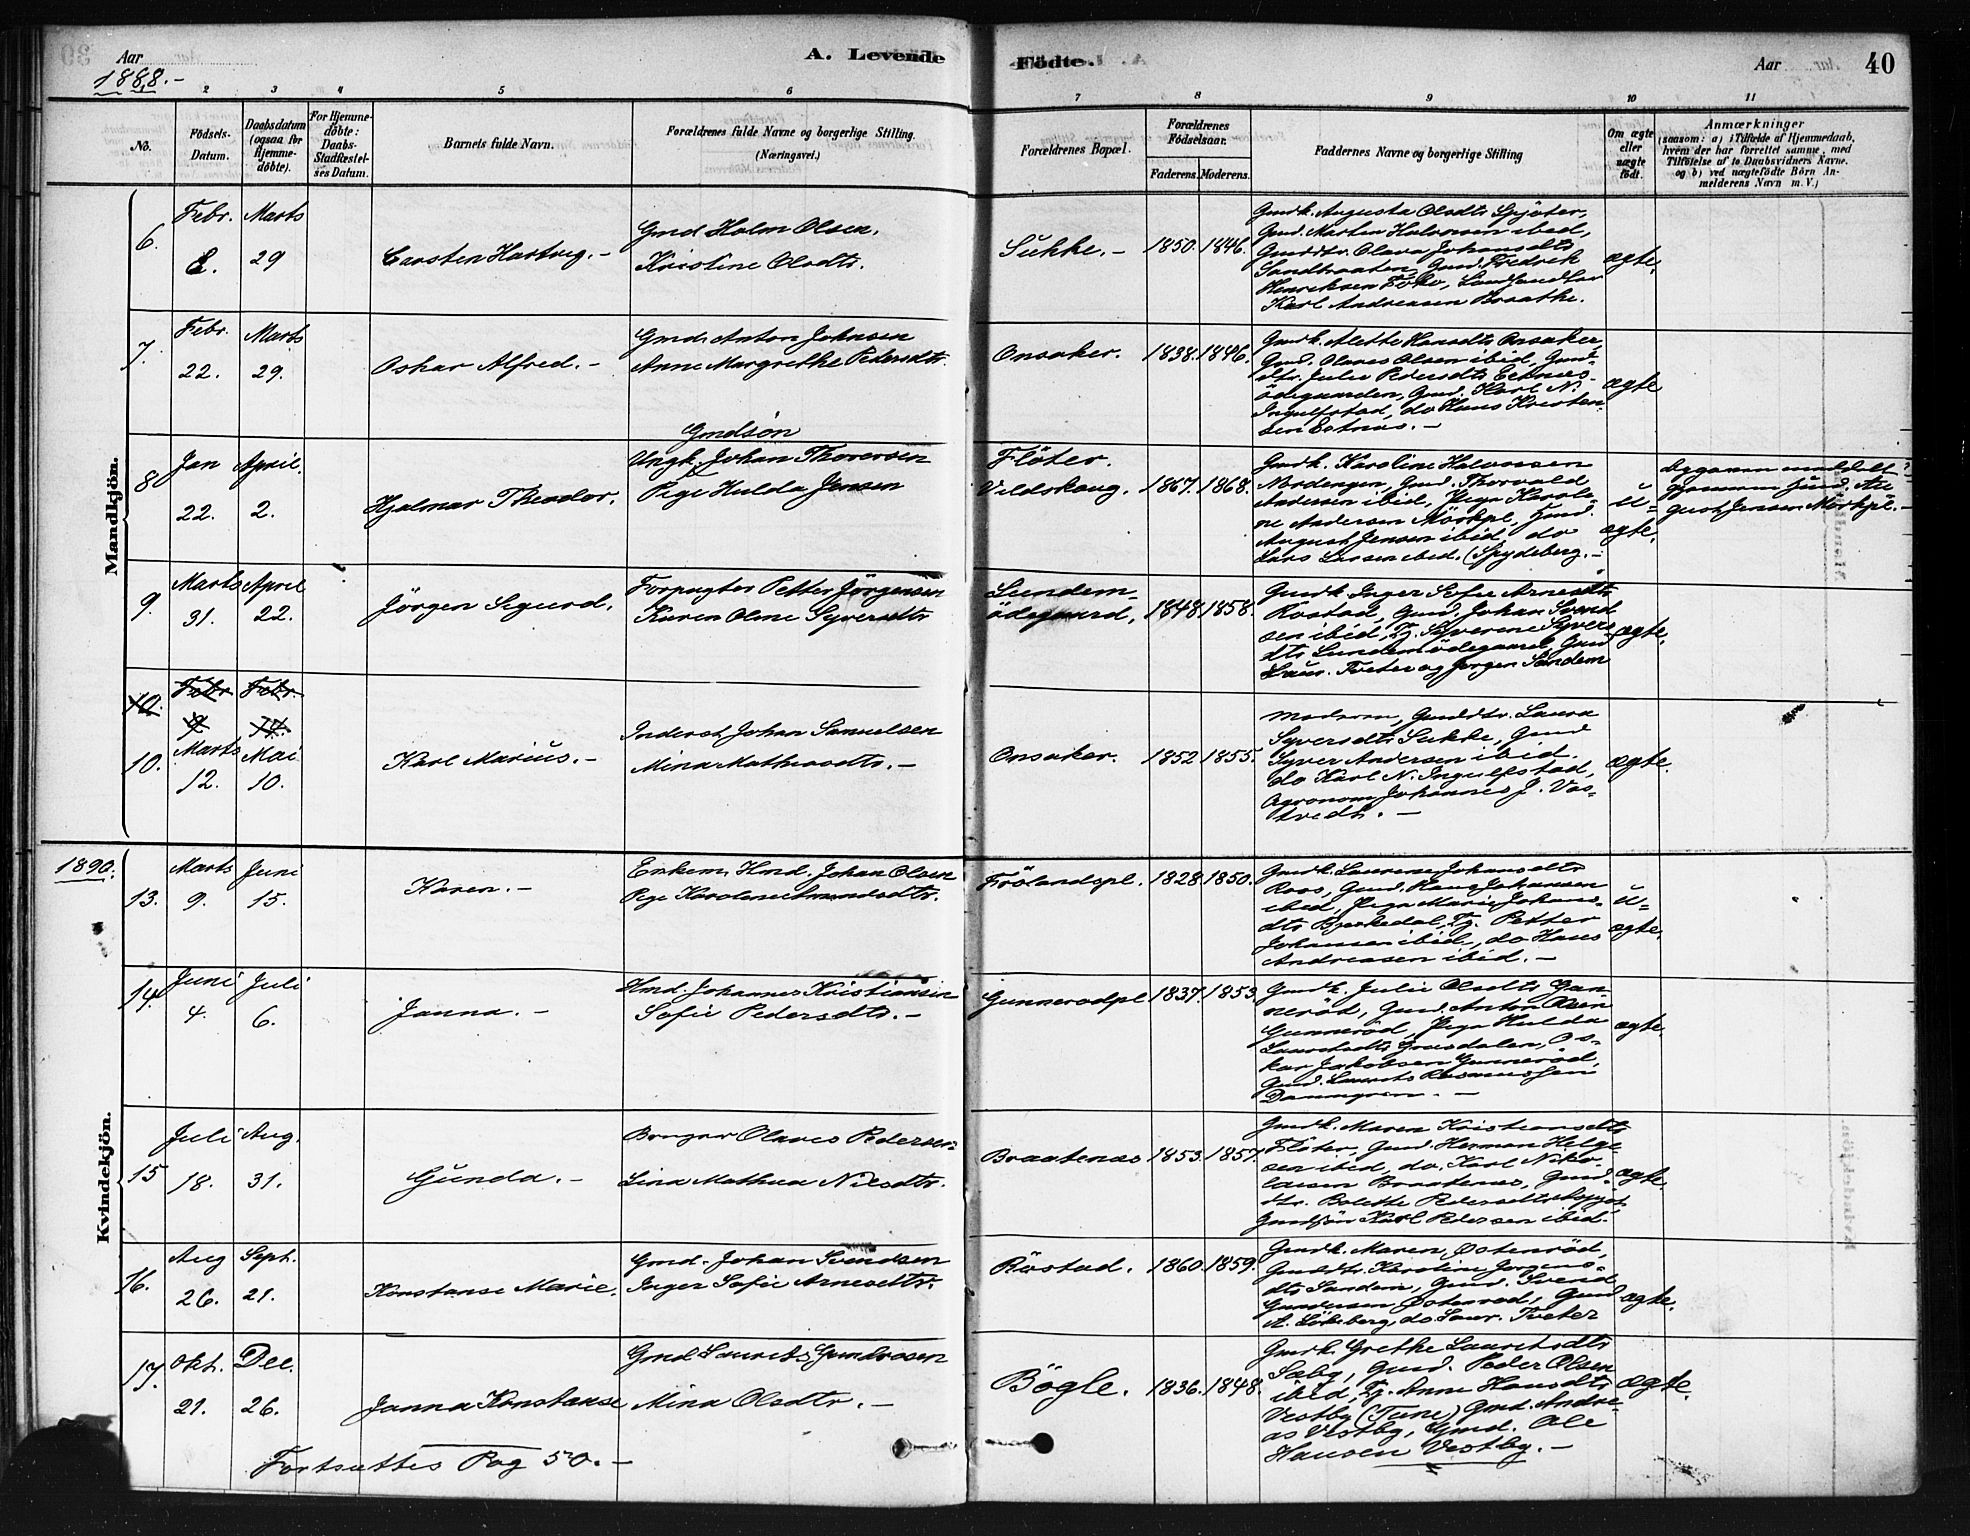 Aar
1888.-
A. Levende
Födte.
Aar
40
2
3
4
5
6
7
8
9
10
11
No.
Födsels-
Datum.
Daabsdatum
(ogsaa for
Hjemme-
döbte).
For Hjemme-
döbte:
Daabs-
Stadfæstel-
ses Datum.
Barnets fulde Navn.
Forældrenes fulde Navne og borgerlige Stilling.
(Næringsvei.)
Forældrenes Bopæl.
Forældrenes
Födselsaar.
Faderens.
Moderens.
Faddernes Navne og borgerlige Stilling
Om ægte
eller
uægte
födt.
Anmærkninger
(saasom: a) i Tilfælde af Hjemmedaab,
hvem der har forrettet samme, med
Tilföielse af to Daabsvidners Navne.
og b) ved uægtefödte Börn An-
melderens Navn m. V.)
Mandkjön.
6.
Febr.
Marts
29
Carsten Hartvig.-
Gmd Holm Olsen.
Kristine Olsdtr.
Sukke.-
1850.
1846.
Gmdk. Augusta Olsdtr Gjöter,
Gmd. Martin Halvorsen ibid,
Gmddtr. Olava Johansdtr
Sandbraaten, Gmd. Fredrik
Henriksen Foko, Landhandler
Karl Andreasen Braathe.
ægte.
7.
Febr.
22.
Marts
29.
Oskar Alfred.-
Gmd. Anton Johnsen
Anne Margrethe Pedersdtr.
Onsaker.
1838.
1846.
Gmdk. Alette Hansdtr Onsaker,
Gmd. Olaves Olsen ibid, Gmd-
dtr. Julie Pedersdtr Eetnæs-
ödegaarden, Gmd. Karl N.
Ingulfstad, do Hans Kristen-
sen Eetnæs.-
ægte
8
Jan
22.
April.
2.
Hjalmar Theodor.
Gmdsön
Ungk. Johan Thoresen
Pige Hulda Jensen
Flöter.
Vildskoug.
1867.
1868.
Gmdk. Karoline Halvorsen
Nordengen, Gmd. Thorvald
Andersen ibid, Pige Karoli-
ne Andersen Mörkpl, Hmd.
August Jensen ibid, do
Lars Larsen ibid. (Spydeberg.-
u=
ægte.
gjennem Husm. Au-
gust Jensen Mörkpl.-
9.
Marts
31.
April
22.
Jörgen Sigurd.
Forpagter Petter Jörgensen
Karen Oline Syversdtr
Lundem-
ödegaard.
1848.
1858.
Gmdk Inger Sofie Arnesdtr
Rostad, Gmd. Johan Svend
sen ibid, Pg. Syverine Syvers
dtr Lundemödegaard, Gmd
Laur. Tveter og Jörgen Sandem
ægte.
10.
Febr
9.
Febr.
10.
Marts
12.
Mai
10.
Karl Marius.-
Inderst Johan Samuelsen
Mina Mathiasdtr.-
Onsaker.
1852
1855.
Moderen, Gmddtr. Laura
Syversdtr Sukke, Gmd
Syver Andersen ibid.
do Karl N. Ingulfstad,
Agronom Johannes J. Vos-
tvedt.-
ægte.
1890.
Kvindekjön.
13.
Marts
9.
Juni
15.
Karen.-
Enkem. Hmd. Johan Olsen
Pige Karoline Amundsdtr.
Frölandspl.
1828.
1850.
Gmdk. Laurense Johansdtr
Roos, Gmd. Hans Johansen
ibid, Pige Marie Johans-
dtr Bjerkedal, Tg. Petter
Johansen ibid, do Hans
Andreasen ibid.-
u=
ægte.
14.
Juni
4.
Juli
6.
Janna.-
Hmd. Johannes Kristiansen
Sofie Pedersdtr.-
Gunnerödpl
1837.
1853.
Gmdk. Julie Olsdtr Gun-
neröd, Gmd. Anton Olsen
Gunneröd, Pige Hulda
Lauritsdtr Græsdalen, Os-
kar Jakobsen Gunneröd,
Gmd. Laurits Rasmussen
ægte.
15
Juli
18.
Aug.
31.
Gunda.-
Bruger Olaves Pedersen
Lina Mathea Nilsdtr.
Braatenæs
1853.
1857.
Gmdk. Maren Kristiansdtr
Flöter, Gmd. Herman Helge-
sen ibid, do. Karl Niko-
laisen Braatenæs, Gmd-
dtr. Bolette Pedersdtr
Gmdsön Karl Pedersen ibid.
ægte.
16.
Aug
26.
Sept.
21.
Konstanse Marie.
Gmd. Johan Svendsen
Inger Sofie Arnesdtr.
Röstad.
1860.
1859.
Gmdk. Maren Östenröd,
Gmddtr. Karoline Jörgens-
dtr Sandem, Gmd. Svend
Gundersen Östenröd, Gmd
A. Lökeberg, do Laur. Tveter
ægte.
17.
Okt.
21.
Dec.
26.
Janna Konstanse
Gmd Laurits Gundrosen
Mina Olsdtr.-
Bögle.
1836.
1848.
Gmdk. Grethe Lauritsdtr
Sæby, Gmd. Peder Olsen
ibid, Pg. Anne Hansdtr
Vestby (Tune) Gmd. Andre-
as Vestby, Gmd. Ole
Hansen Vestby.-
ægte.
Fortsættes Pag 50.-